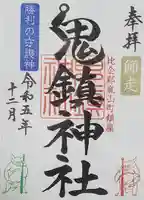 奉拝
師走
比企郡嵐山町
鬼鎮神社
勝利の守護神
令和五年
十二月